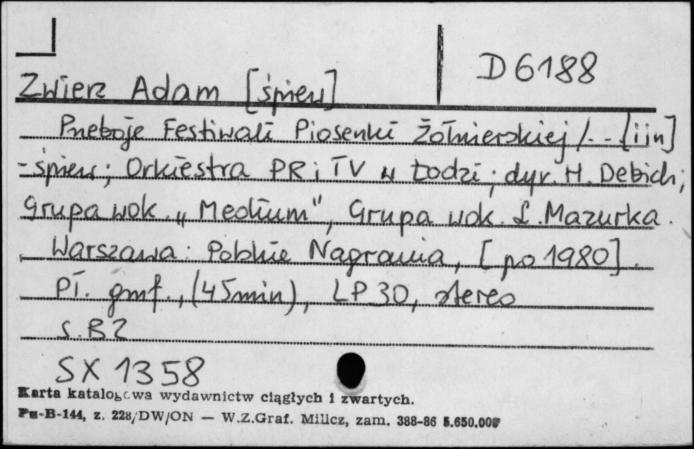 D 6188
Zwierz Adam [śpiew]
Przeboje Festiwali Piosenki Żołnierskiej /... [i in]
-śpiew; Orkiestra PR i TV w Łodzi; dyr. H. Debich;
Grupa wok. „Medium", Grupa wok. Ł. Mazurka.
Warszawa: Polskie Nagrania, [po 1980].
Pł. gmf., (45min), LP 30, stereo
s. B2
SX 1358
Karta katalogowa wydawnictw ciągłych i zwartych.
Pu-B-144, z. 228/DW/ON — W.Z.Graf. Milicz, zam. 388-86 5.650.000